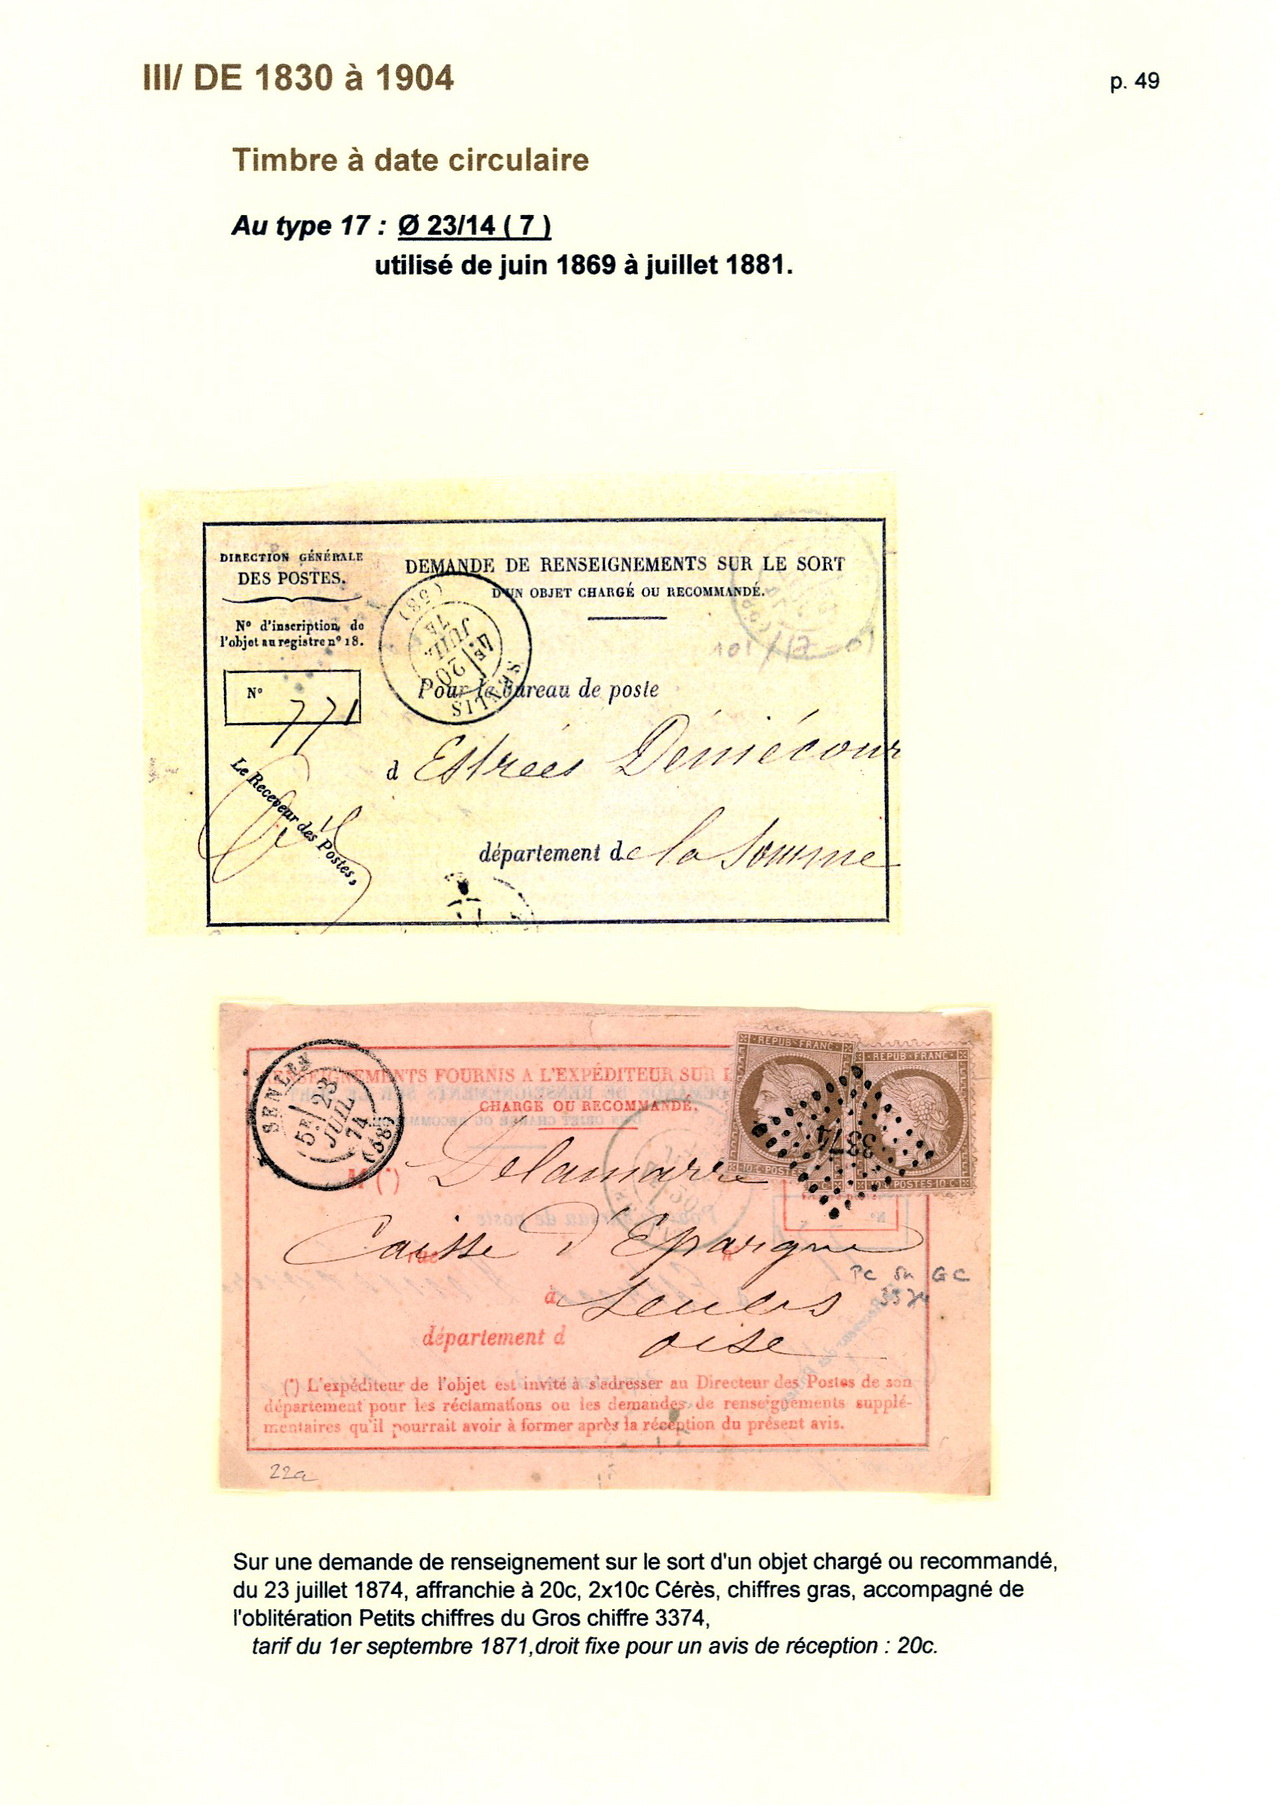 III/ DE 1830 à 1904
p. 49
Timbre à date circulaire
Au type 17 : Ø 23/14 ( 7 )
utilisé de juin 1869 à juillet 1881.
DIRECTION GÉNÉRALE
DES POSTES.
DEMANDE DE RENSEIGNEMENTS SUR LE SORT
D'UN OBJET CHARGÉ OU RECOMMANDÉ.
N° d'inscription de
l'objet au registre n° 18.
N° 771
SENLIS (58)
4E
20
JUIL
74
Pour le bureau de poste
à Estrées Deniécour
Le Receveur des Postes,
département de la Somme
RENSEIGNEMENTS FOURNIS A L'EXPÉDITEUR SUR L
CHARGÉ OU RECOMMANDÉ.
SENLIS (58)
5E
23
JUIL
74
REPUB FRANC
10 C POSTES 10 C
REPUB FRANC
10 C POSTES 10 C
3374
M (*) Delamarre
rue Caisse d'Epargne
à Senlis
département d oise
PC du GC
3374
(*) L'expéditeur de l'objet est invité à s'adresser au Directeur des Postes de son
département pour les réclamations ou les demandes de renseignements supplé-
mentaires qu'il pourrait avoir à former après la réception du présent avis.
22a
Sur une demande de renseignement sur le sort d'un objet chargé ou recommandé,
du 23 juillet 1874, affranchie à 20c, 2x10c Cérès, chiffres gras, accompagné de
l'oblitération Petits chiffres du Gros chiffre 3374,
tarif du 1er septembre 1871,droit fixe pour un avis de réception : 20c.